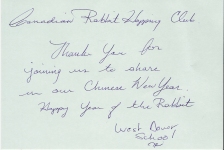 Canadian Rabbit Hopping Club
Thank You for
joining us to share
in our Chinese New Year.
Happy Year of the Rabbit
West Dover
School